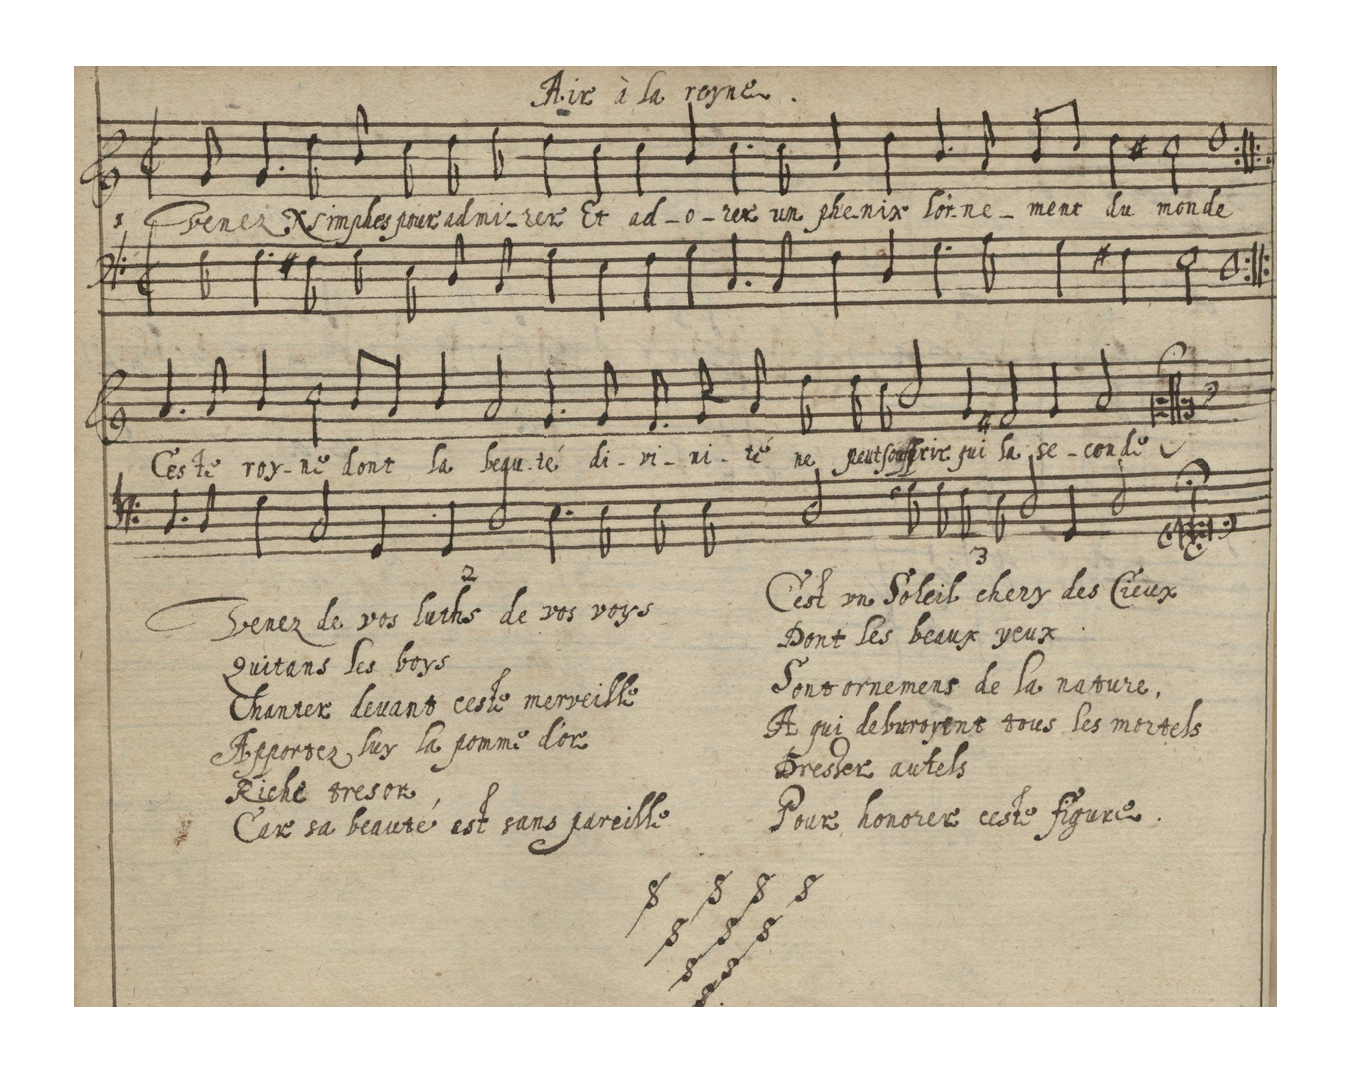 Air à la reyne.
1 Venez Nimphes pour admi-rer Et ad-o-rer un phe-nix l'or-ne-ment du monde
Ceste roy-ne dont la beau-té di-vi-ni-té ne peut souffrir qui la se-conde
2
Venez de vos luths de vos voys
Quitans les boys
Chanter devant ceste merveille
Apportez luy la pomme d'or
Riche tresor
Car sa beauté est sans pareille
3
C'est un Soleil chery des Cieux
Dont les beaux yeux
Sont ornemens de la nature,
A qui debvroyent tous les mortels
Dresser autels
Pour honorer ceste figure.